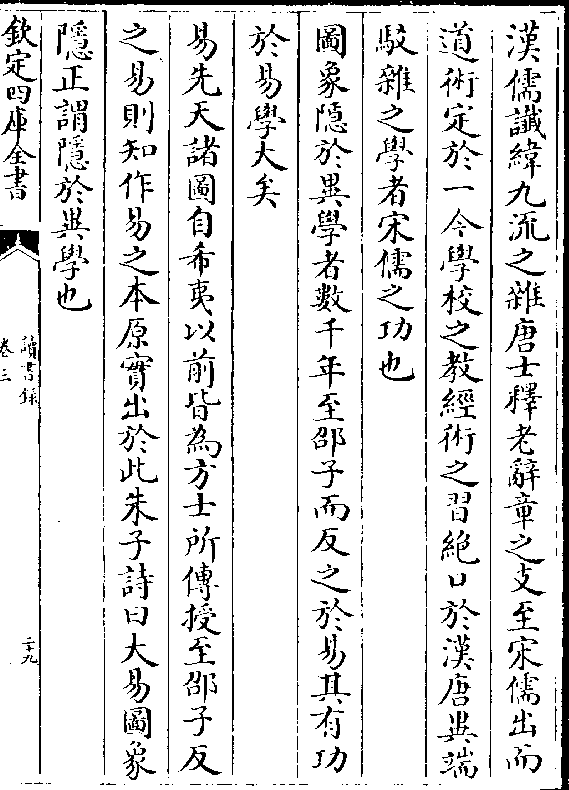 漢儒讖緯九流之雜唐士釋老辭章之支至宋儒出而
道術定於一今學校之教經術之習絶口於漢唐異端
駁雜之學者宋儒之功也
圖象隱於異學者數千年至邵子而反之於易其有功
於易學大矣
易先天諸圖自希夷以前皆為方士所傳授至邵子反
之易則知作易之本原實出於此朱子詩曰大易圖象
隱正謂隱於異學也
欽定四庫全書
讀書錄
卷三
二十九